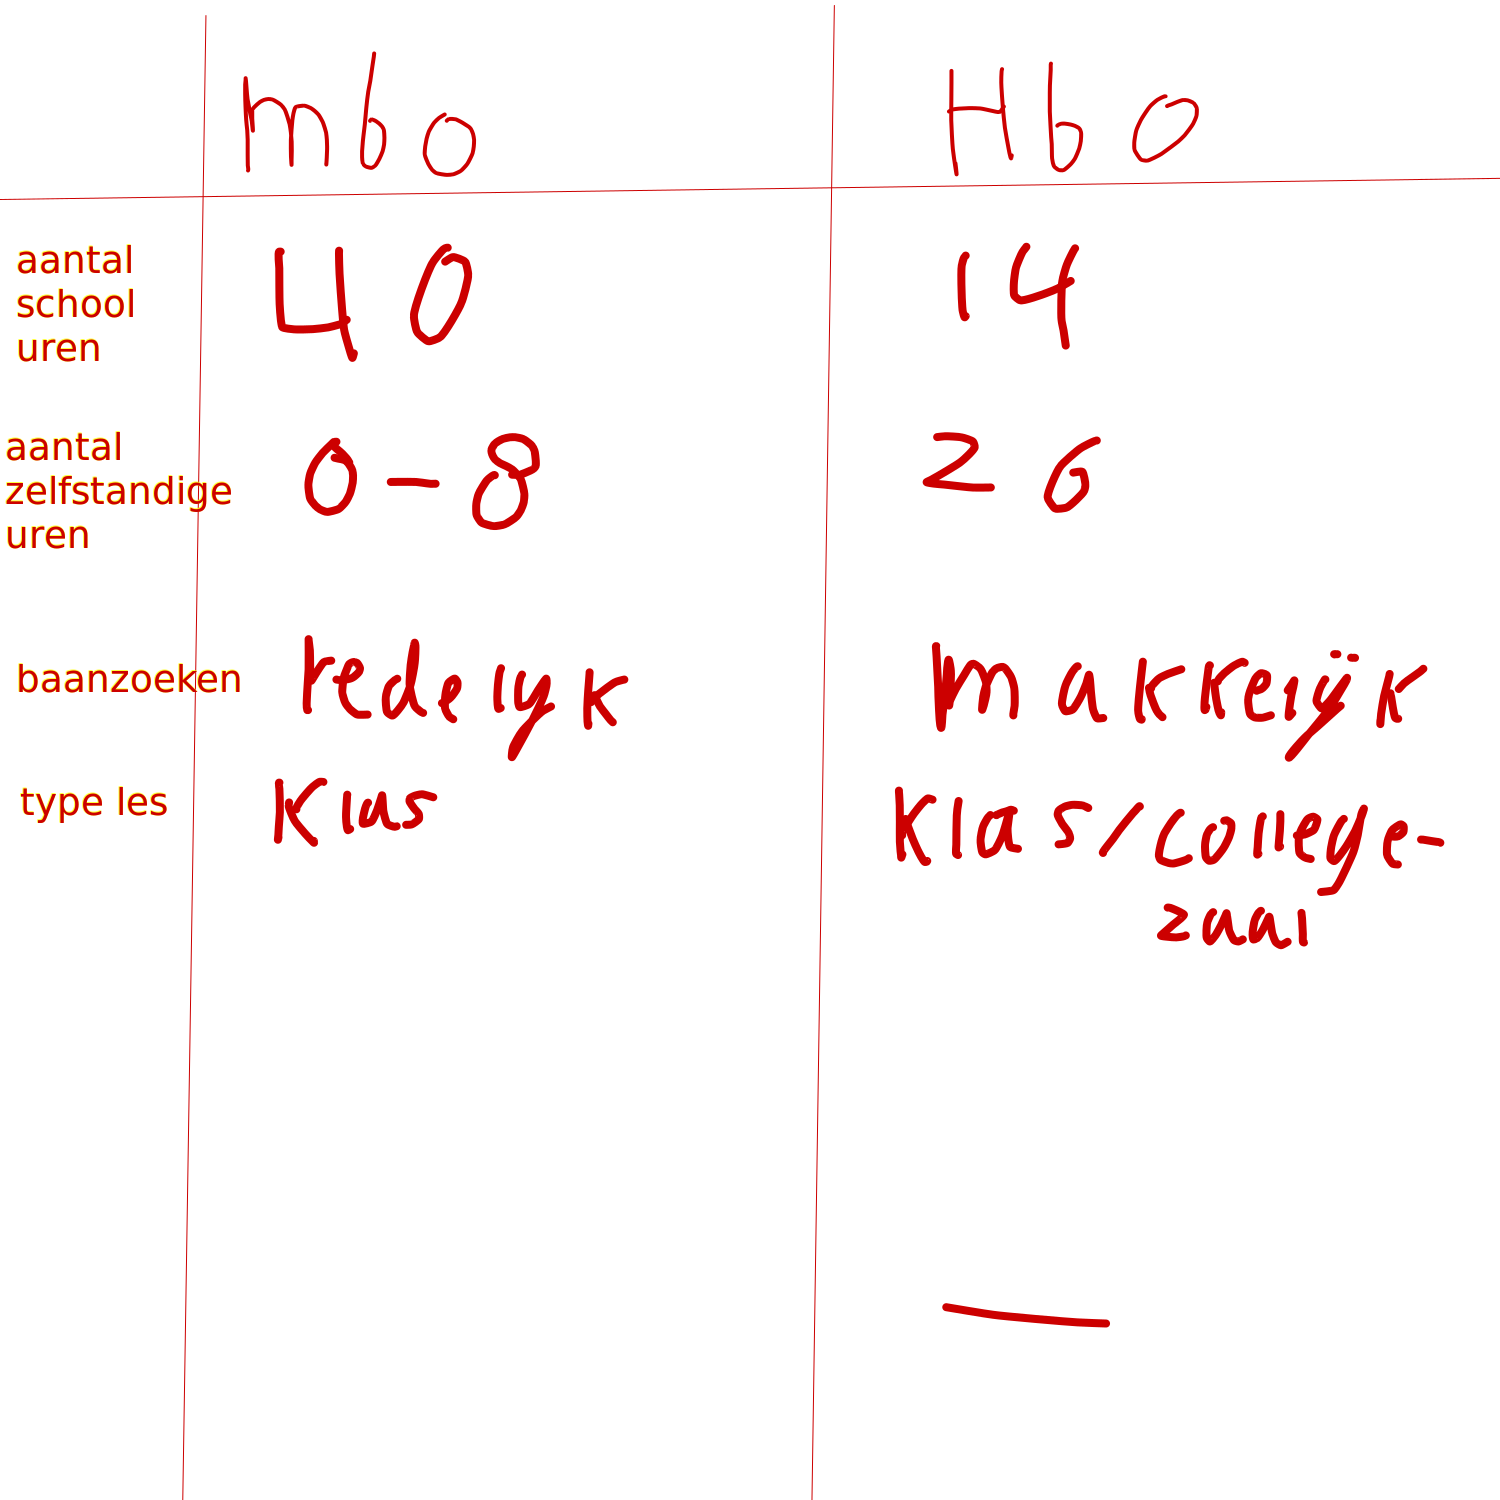 mbo Hbo
aantal
school
uren
40 14
aantal
zelfstandige
uren
0-8 26
baanzoeken redelyk makkelÿk
type les klas klas/college-
zaal